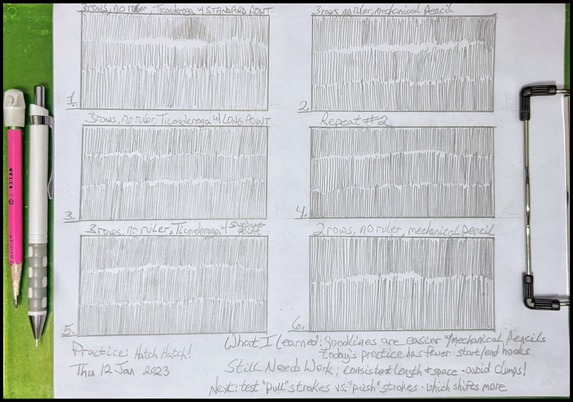 3 rows, no ruler, Ticonderoga w/ STANDARD POINT
1.
3 rows no ruler, mechanical pencil
2.
3 rows, no ruler, Ticonderoga w/ LONG POINT
3.
Repeat #2
4.
3 rows, no ruler, Ticonderoga w/ sandpaper point
5.
2 rows, no ruler, mechanical pencil
6.
Practice: Hatch Hatch!
Thu 12 Jan 2023
What I Learned: Good lines are easier w/ mechanical pencils
today's practice has fewer start/end hooks
Still Needs Work: consistent length & space - avoid clumps!
Next: test "pull" strokes vs. "push" strokes - which shifts more